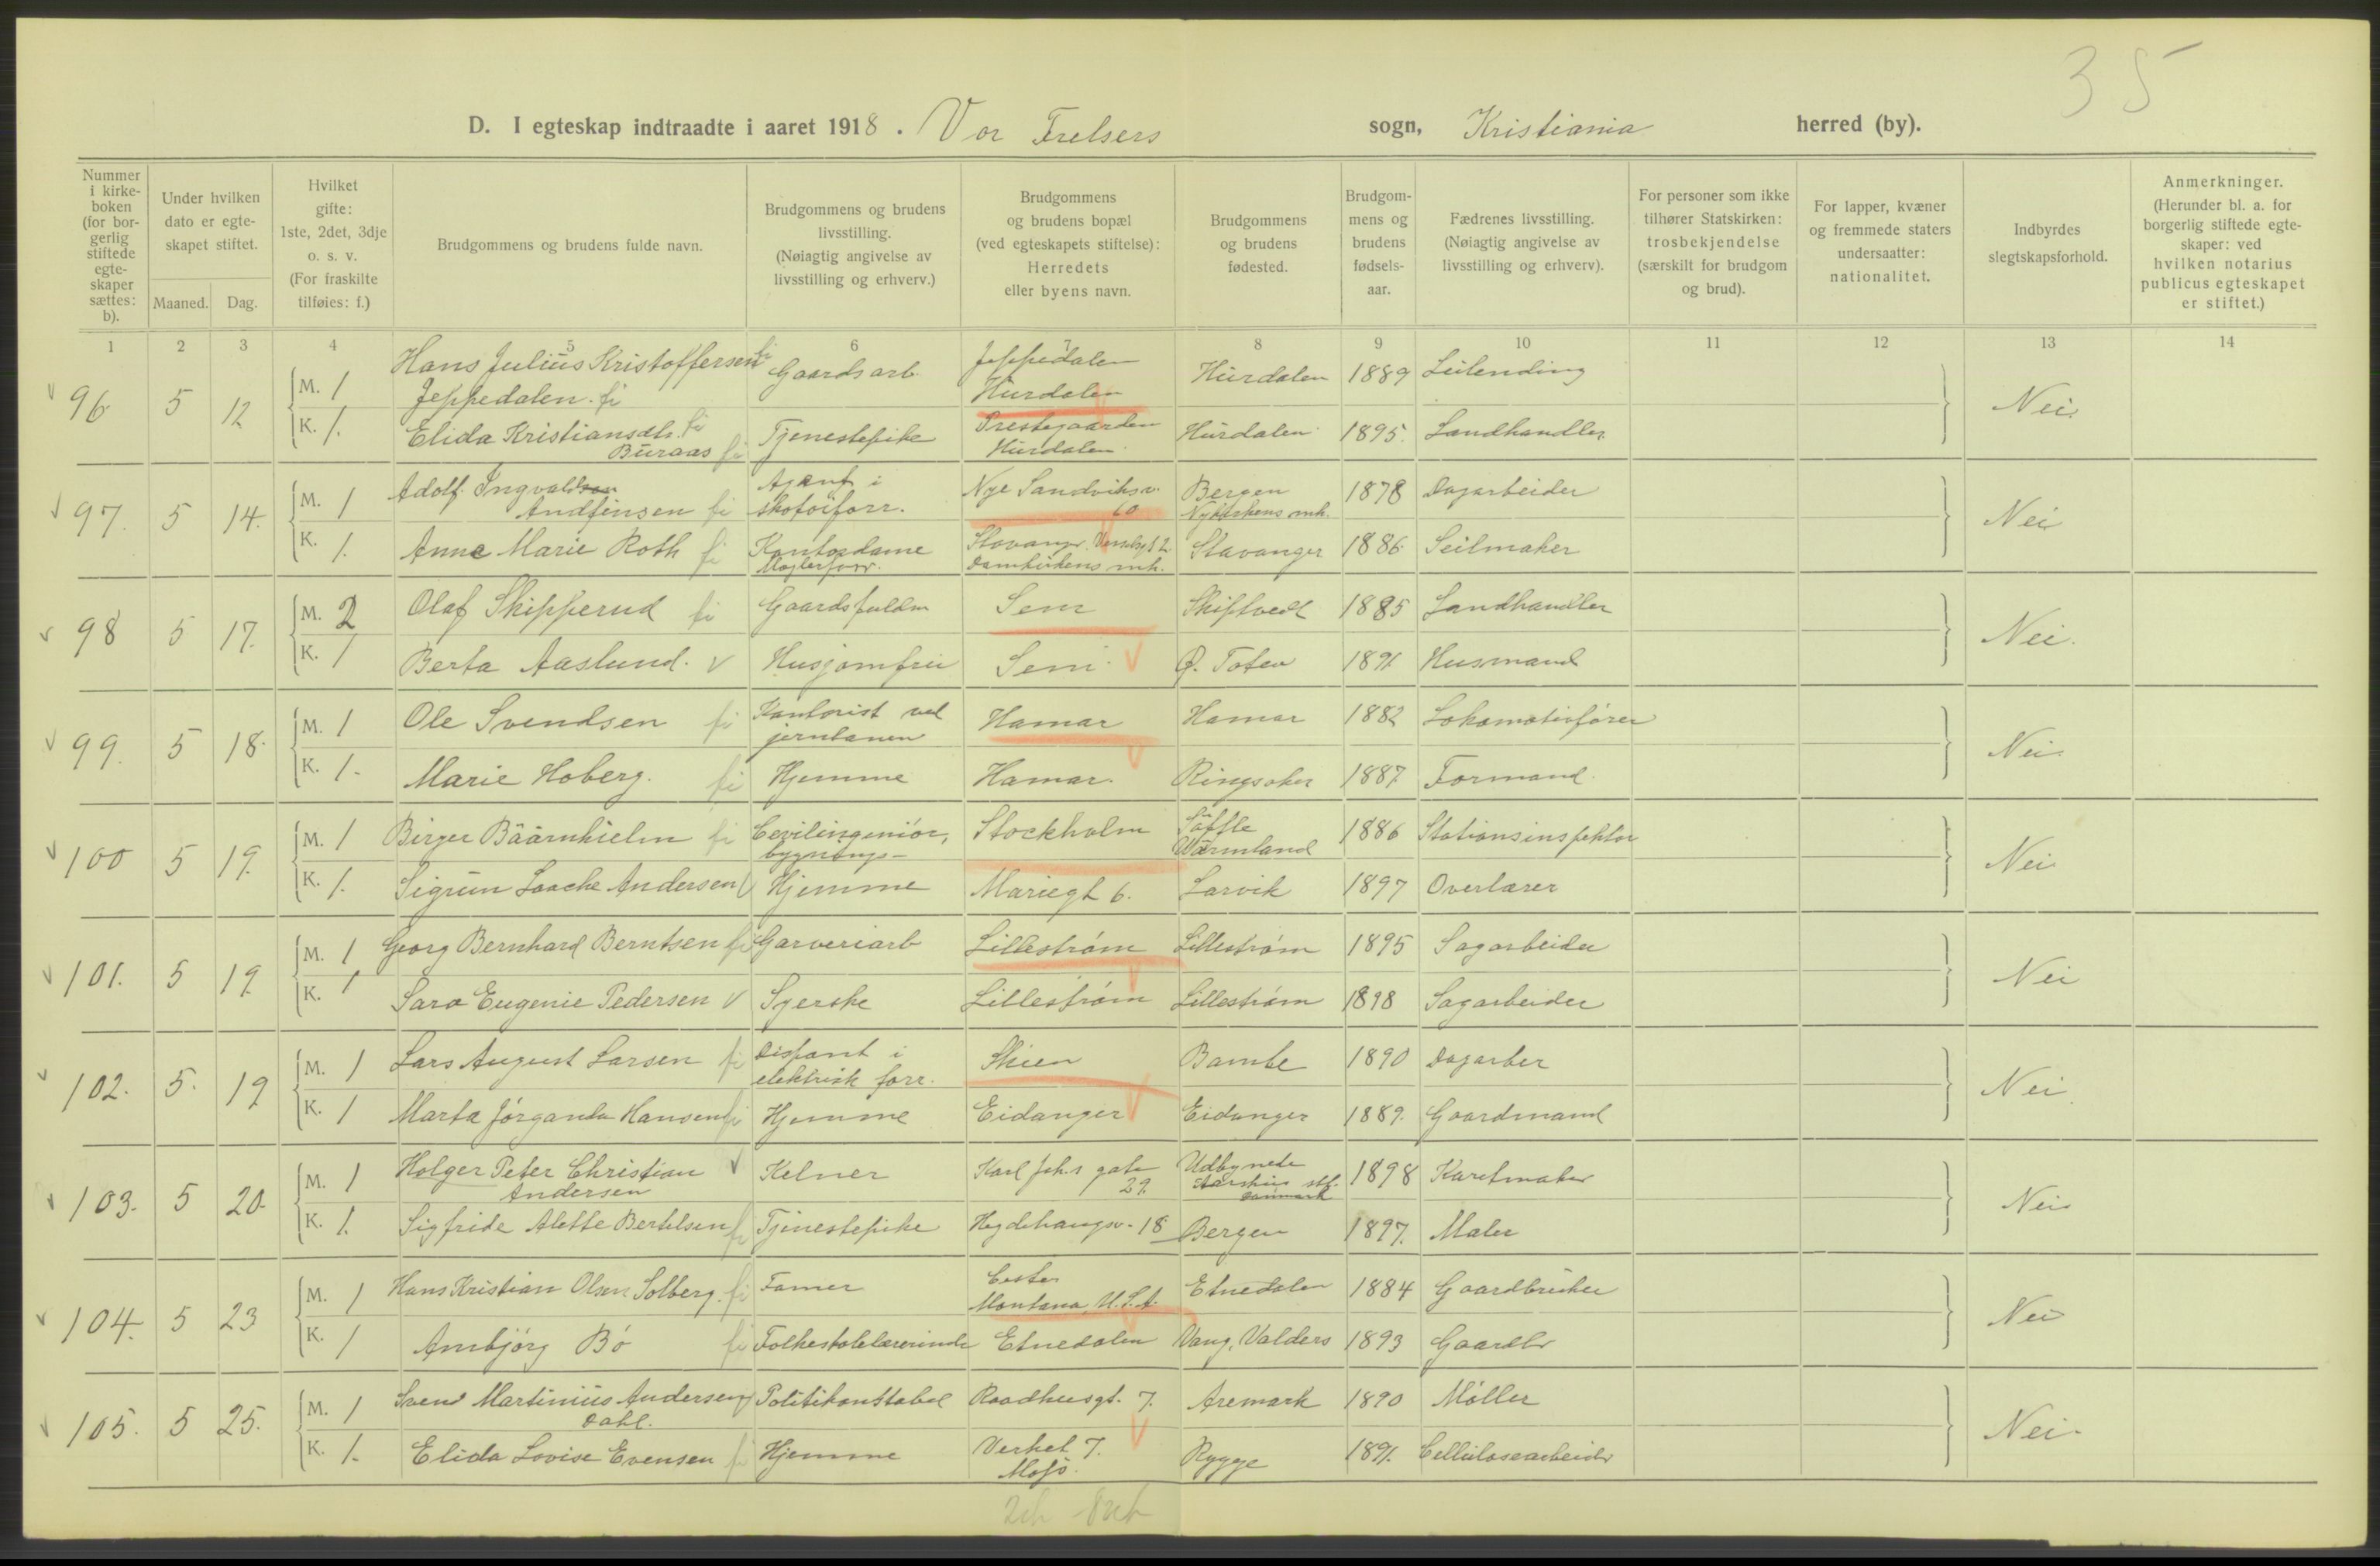 35
D. I egteskap indtraadte i aaret 1918. Vor Frelsers sogn, Kristiania herred (by).
Nummer i kirke-boken (for bor-gerlig stiftede egte-skaper sættes: b).
Under hvilken dato er egte-skapet stiftet.
Maaned. Dag.
Hvilket gifte: 1ste, 2det, 3dje o. s. v. (For fraskilte tilføies: f.)
Brudgommens og brudens fulde navn.
Brudgommens og brudens livsstilling. (Nøiagtig angivelse av livsstilling og erhverv.)
Brudgommens og brudens bopæl (ved egteskapets stiftelse): Herredets eller byens navn.
Brudgommens og brudens fødested.
Brudgom-mens og brudens fødsels-aar.
Fædrenes livsstilling. (Nøiagtig angivelse av livsstilling og erhverv).
For personer som ikke tilhører Statskirken: trosbekjendelse (særskilt for brudgom og brud).
For lapper, kvæner og fremmede staters undersaatter: nationalitet.
Indbyrdes slegtskapsforhold.
Anmerkninger. (Herunder bl. a. for borgerlig stiftede egte-skaper: ved hvilken notarius publicus egteskapet er stiftet.)
1 2 3 4 5 6 7 8 9 10 11 12 13 14
96 5 12 M. 1 Hans Julius Kristoffersen Jeppedalen fi Gaardsarb. Jeppedalen Hurdalen Hurdalen 1889 Leilending Nei.
K. 1. Elida Kristiansdtr. fi Buraas fi Tjenestepike Prestegaarden Hurdalen Hurdalen 1895. Landhandler
97. 5 14. M. 1 Adolf Ingvaldsen Andfinsen fi Agent i skotøiforr. Nye Sandviksv. 60 Bergen Nykirkens mh. 1878 Dagarbeider Nei
K. 1. Anne Marie Roth fi Kontordame Stavanger Domkirkens mh. Stavanger 1886 Seilmaker
98 5 17. M. 2 Olaf Skipperud fi Gaardsfuldm Sem Skiptvedt 1885 Landhandler Nei.
K. 1 Berta Aaslund. v Husjomfru Sem Ø. Toten 1891 Husmand
99. 5 18. M. 1 Ole Svendsen fi Kontorist ved jernbanen Hamar Hamar 1882 Lokomotivfører Nei
K. 1. Marie Hoberg. fi Hjemme Hamar. Ringsaker 1887 Formand
100 5 19. M. 1 Birger Bäärnhielm fi Civilingeniør, bygnings- Stockholm Säffle Wärmland 1886 Stationsinspektør Nei
K. 1. Sigrun Laache Andersen v Hjemme Mariegt 6. Larvik 1897 Overlærer
101. 5 19 M. 1 Georg Bernhard Berntsen fi Garveriarb Lillestrøm Lillestrøm 1895 Sagarbeider Nei
K. 1 Sara Eugenie Pedersen v Syerske Lillestrøm Lillestrøm 1898 Sagarbeider
102. 5. 19 M. 1 Lars August Larsen fi Disponent i elektrisk forr. Skien Bamle 1890 Dagarber Nei
K. 1 Marta Jørganda Hansen fi Hjemme Eidanger Eidanger 1889. Gaardmand
103. 5 20. M. 1 Holger Peter Christian Andersen v Kelner Karl Joh.s gate 29. Udbyneder Danmark 1898 Karetmaker Nei
K. 1. Sigfride Alette Bertelsen fi Tjenestepike Hegdehaugsv. 18 Bergen 1897. Maler
104. 5 23 M. 1 Hans Kristian Olsen Solberg. fi Famer Montana, U.S.A. Etnedalen 1884 Gaardbruker Nei
K. 1 Ambjørg Bø fi Folkeskolelærerinde Etnedalen Vang, Valders 1893 Gaardbr
105. 5 25. M. 1 Svend Martinius Andersen Dahl. Politikonstabel Raadhusgt. 7. Aremark 1890 Møller Nei.
K. 1. Elida Lovise Evensen fi Hjemme Verket 7. Moss Rygge 1891. Cellulosearbeider